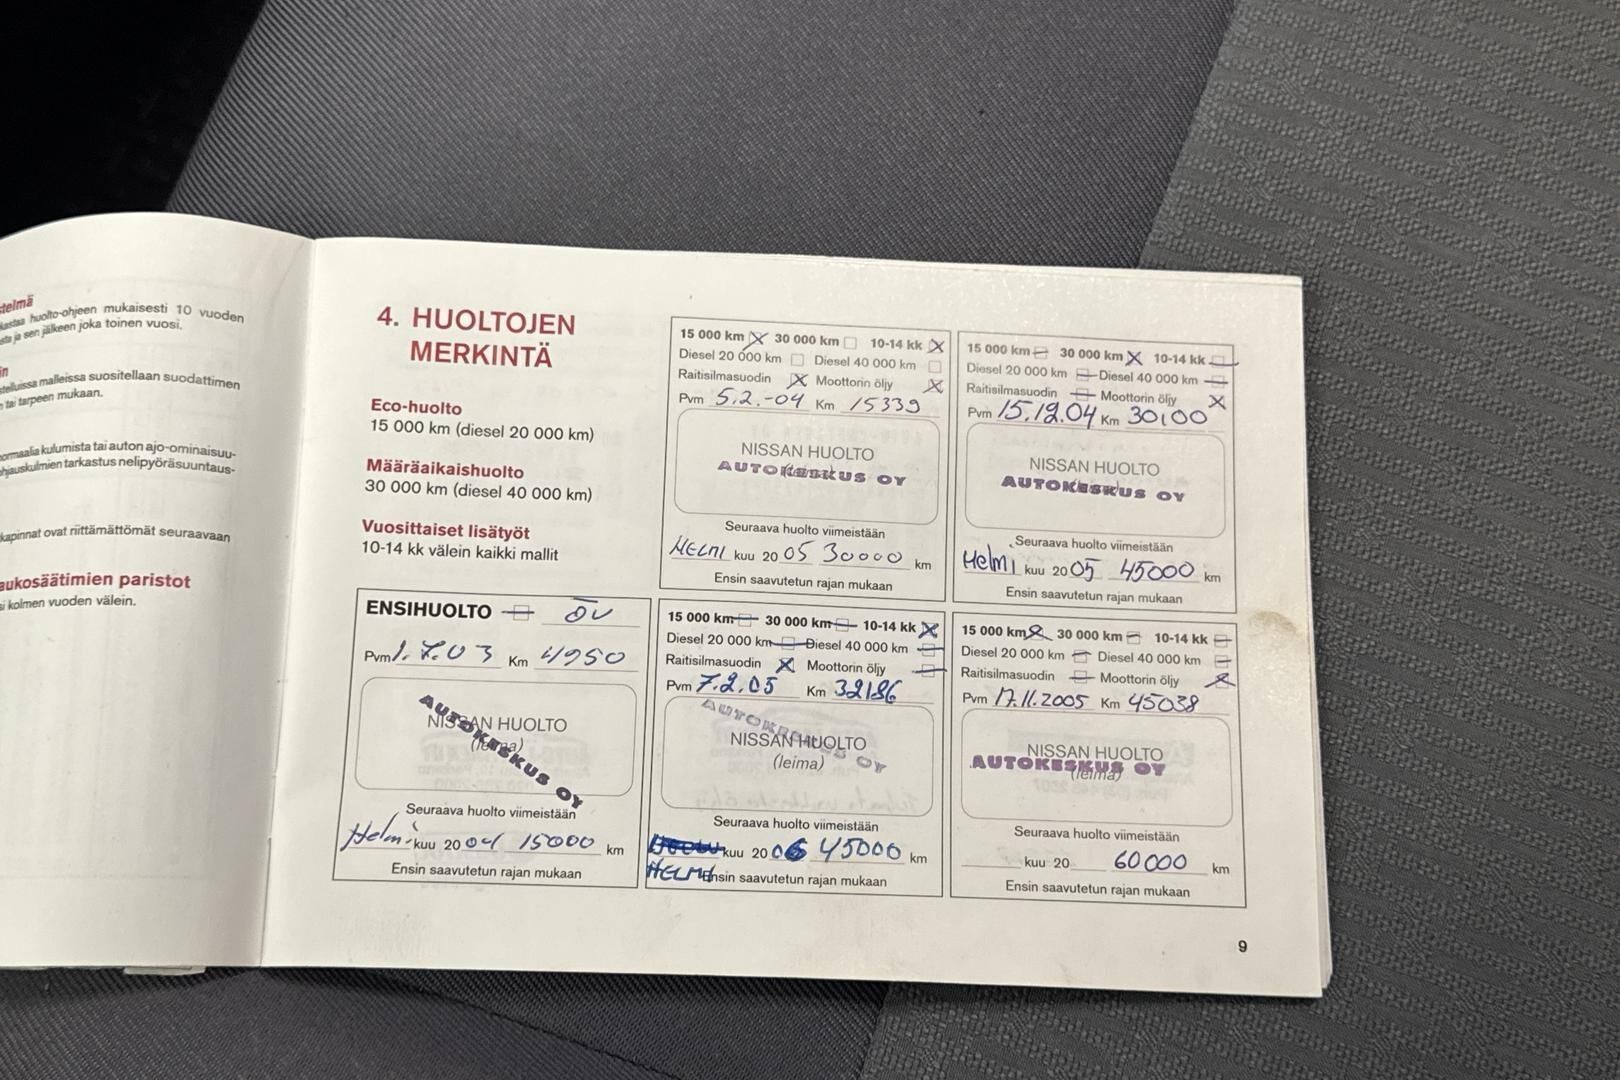 stelmä
kastaa huolto-ohjeen mukaisesti 10 vuoden
ja sen jälkeen joka toinen vuosi.
malleissa suositellaan suodattimen
tai tarpeen mukaan.
normaalia kulumista tai auton ajo-ominaisuu-
ohjauskulmien tarkastus nelipyöräsuuntaus-
kapinnat ovat riittämättömät seuraavaan
aukosäätimien paristot
si kolmen vuoden välein.
4. HUOLTOJEN
MERKINTÄ
Eco-huolto
15 000 km (diesel 20 000 km)
Määräaikaishuolto
30 000 km (diesel 40 000 km)
Vuosittaiset lisätyöt
10-14 kk välein kaikki mallit
15 000 km 30 000 km 10-14 kk
Diesel 20 000 km Diesel 40 000 km
Raitisilmasuodin Moottorin öljy
Pvm 5.2.-04 Km 15339
NISSAN HUOLTO
AUTOKESKUS OY
Seuraava huolto viimeistään
HELMI kuu 20 05 30000 km
Ensin saavutetun rajan mukaan
15 000 km 30 000 km 10-14 kk
Diesel 20 000 km Diesel 40 000 km
Raitisilmasuodin Moottorin öljy
Pvm 15.12.04 Km 30100
NISSAN HUOLTO
AUTOKESKUS OY
Seuraava huolto viimeistään
Helmi kuu 20 05 45000 km
Ensin saavutetun rajan mukaan
ENSIHUOLTO
Pvm 1.7.03 Km 4950
NISSAN HUOLTO
(leima)
AUTOKESKUS OY
Seuraava huolto viimeistään
Helmi kuu 20 04 15000 km
Ensin saavutetun rajan mukaan
15 000 km 30 000 km 10-14 kk
Diesel 20 000 km Diesel 40 000 km
Raitisilmasuodin Moottorin öljy
Pvm 7.2.05 Km 32186
AUTOKESKUS OY
NISSAN HUOLTO
(leima)
Seuraava huolto viimeistään
kuu 20 06 45000 km
HELMI Ensin saavutetun rajan mukaan
15 000 km 30 000 km 10-14 kk
Diesel 20 000 km Diesel 40 000 km
Raitisilmasuodin Moottorin öljy
Pvm 17.11.2005 Km 45038
NISSAN HUOLTO
AUTOKESKUS OY
(leima)
Seuraava huolto viimeistään
kuu 20 60000 km
Ensin saavutetun rajan mukaan
9